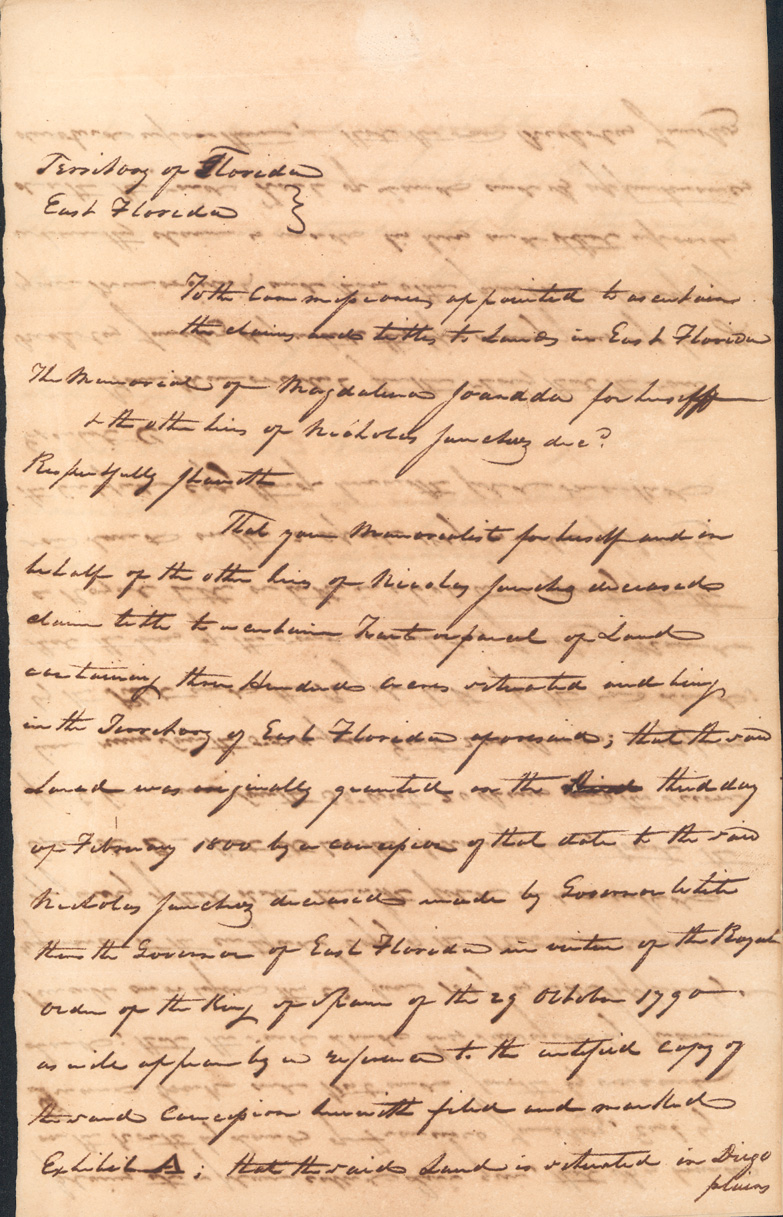 Territory of Florida
East Florida }
To the Commissioners appointed to ascertain
the claims and titles to Lands in East Florida
The Memorial of Magdalena Joaneda for herself
& the other heirs of Nicholas Sanchez decd
Respectfully sheweth
That your Memorialist for herself and in
behalf of the other heirs of Nicolas Sanchez deceased
claim title to a certain Tract or parcel of Land
containing three Hundred acres situated and being
in the Territory of East Florida aforesaid; that the said
Land was originally granted on the third day
of February 1800 by a concession of that date to the said
Nicholas Sanchez deceased made by Governor White
then the Governor of East Florida in virtue of the Royal
order of the King of Spain of the 29 October 1790
as will appear by a reference to the certified copy of
the said Concession herewith filed and marked
Exhibit A; that the said Land is situated in Diego
plains